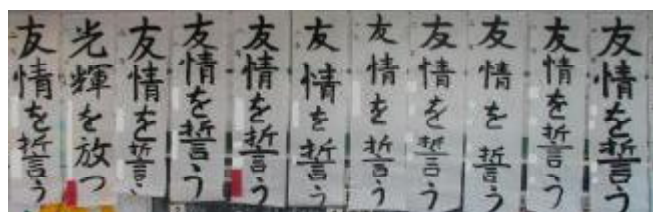 友情を誓う
友情を誓う
友情を誓う
友情を誓う
友情を誓う
友情を誓う
友情を誓う
友情を誓う
友情を誓う
光輝を放つ
友情を誓う